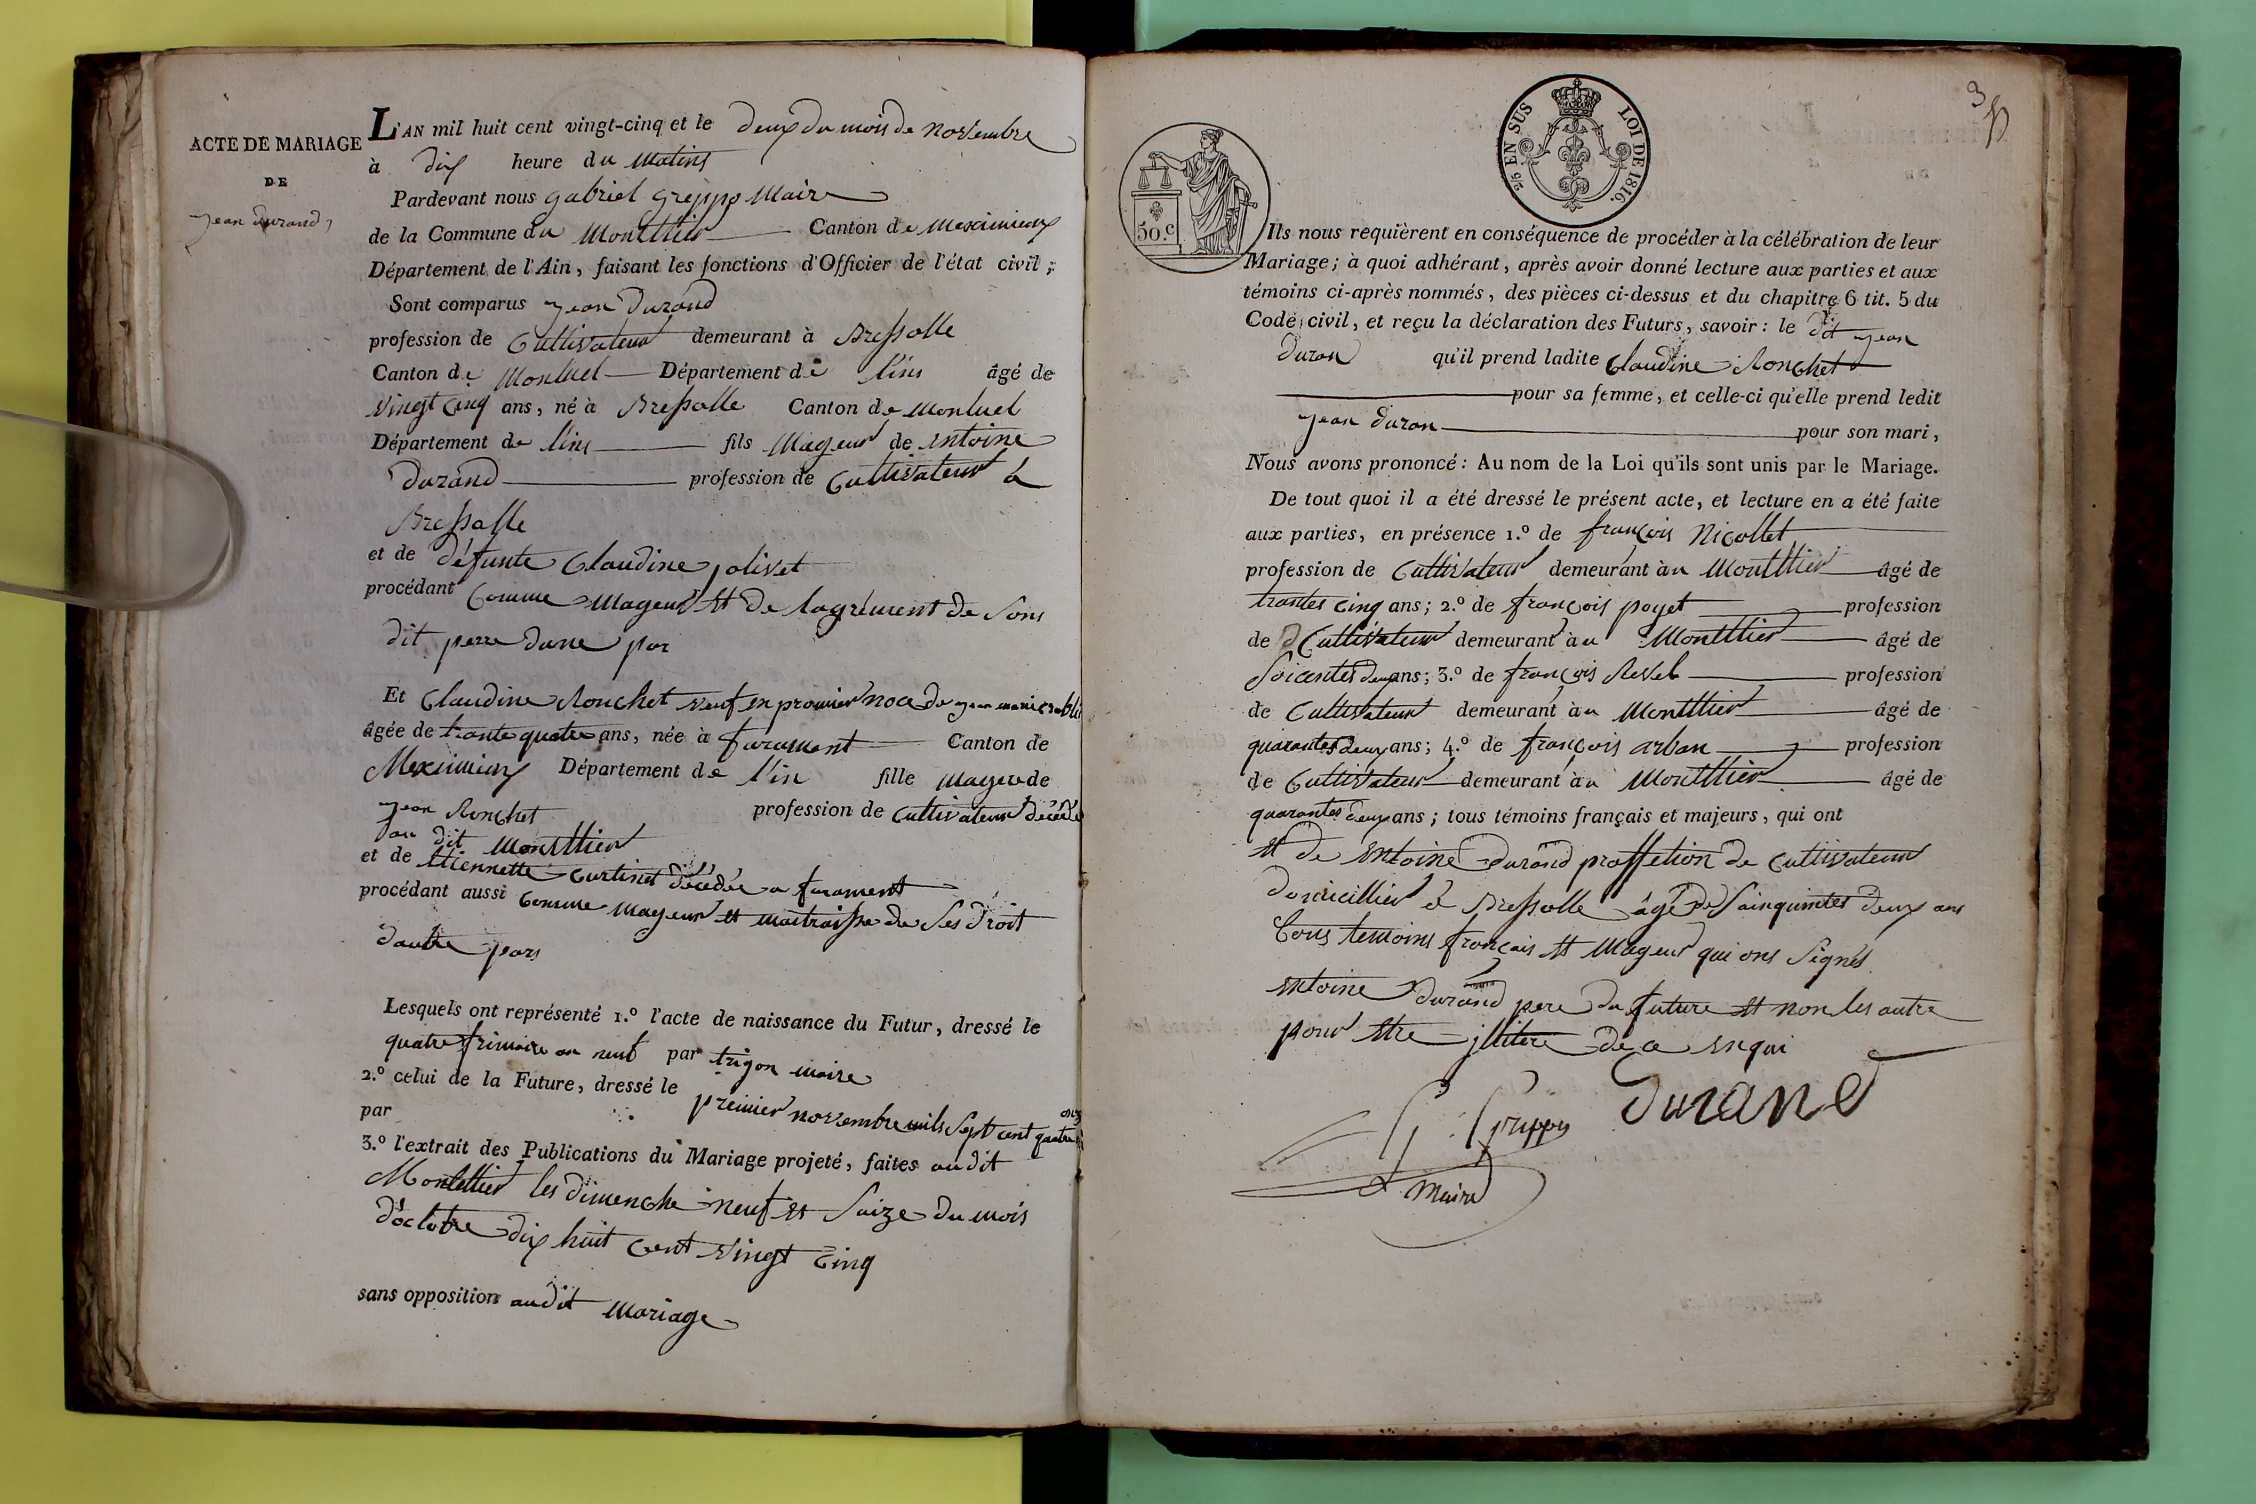 ACTE DE MARIAGE
DE
jean durand
L'AN mil huit cent vingt-cinq et le deux du mois de novembre
à dix heure du matins
Pardevant nous gabriel greppo maire
de la Commune du Monthlier Canton de meximieux
Département de l'Ain, faisant les fonctions d'Officier de l'état civil;
Sont comparus jean durand
profession de Cultivateur demeurant à Bressolle
Canton de Monluel Département de l'ins âgé de
vingt cinq ans, né à Bressolle Canton de Monluel
Département de l'ins fils mageur de entoine
durand profession de Cultivateur à
Bressolle
et de défunte Claudine jolivet
procédant Comme mageur et de lagrément de sons
dit perre dune par
Et Claudine Ronchet veuf en promier noce de jean marie
âgée de trante quatre ans, née à faramant Canton de
Meximieux Département de l'in fille mageure de
jean Ronchet profession de Cultivateur décédé
au dit Monthlier
et de Etiennette Curtinet décédée a faramant
procédant aussi Comme mageur et maitraisse de ses droit
dautre pars
Lesquels ont représenté 1.º l'acte de naissance du Futur, dressé le
quatre frimaire an neuf par trigon maire
2.º celui de la Future, dressé le premier novembre mils sept cent quatre onze
par
3.º l'extrait des Publications du Mariage projeté, faites au dit
Monthlier les dimenche neuf et saize du mois
d'octobre dix huit cent vingt cinq
sans opposition audit mariage
2/5 EN SUS LOI DE 1816.
50.c
3
Ils nous requièrent en conséquence de procéder à la célébration de leur
Mariage; à quoi adhérant, après avoir donné lecture aux parties et aux
témoins ci-après nommés, des pièces ci-dessus et du chapitre 6 tit. 5 du
Code civil, et reçu la déclaration des Futurs, savoir: le dit jean
duran qu'il prend ladite Claudine Ronchet
pour sa femme, et celle-ci qu'elle prend ledit
jean duran pour son mari,
Nous avons prononcé: Au nom de la Loi qu'ils sont unis par le Mariage.
De tout quoi il a été dressé le présent acte, et lecture en a été faite
aux parties, en présence 1.º de françois Nicollet
profession de Cultivateur demeurant au Monthlier âgé de
trantes cinq ans; 2.º de françois poyet profession
de Cultivateur demeurant au Monthlier âgé de
soicentes deux ans; 3.º de françois Revel profession
de Cultivateur demeurant au Monthlier âgé de
quarantes deux ans; 4.º de françois arban profession
de Cultivateur demeurant au Monthlier âgé de
quarantes deux ans; tous témoins français et majeurs, qui ont
et de entoine durand proffetion de cultivateur
domicillier à Bressolle âgé de sainquintes deux ans
tous temoins français et mageur qui ons signés
entoine durand pere du future et non les autre
pour etre illitere de ce enqui
G. Greppo durand
maire